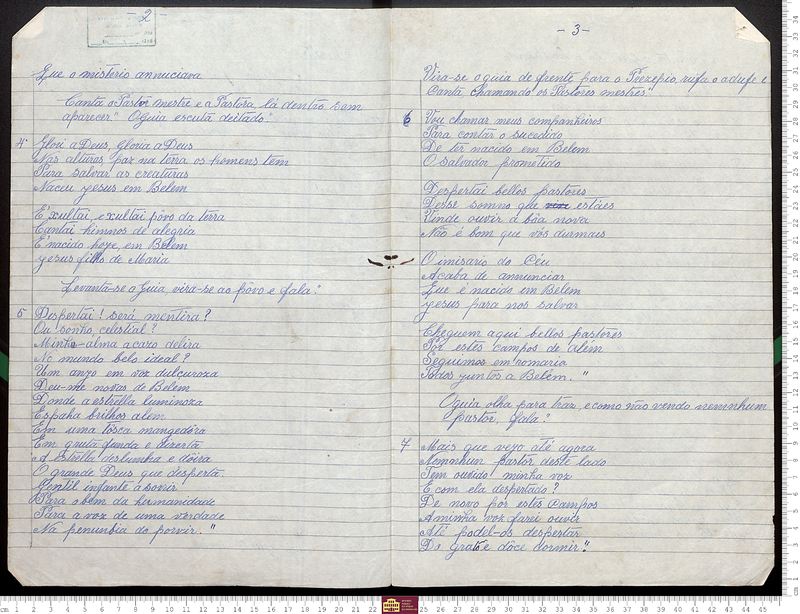 - 2 -
Que o misterio annuciava
Canta o Pastor mestre e a Pastora, lá dentro, sem
aparecer" O guia escuta deitado."
4. Glori a Deus, Gloria a Deus
Nas alturas paz na terra os homens tem
Para salvar as creaturas
Naceu yesus em Belem
E'xultai, exultai povo da terra
Cantai himnos de alegria
E' nacido hoje, em Belem
yesus filho de Maria
Levanta-se o Guia vira-se ao pôvo e fala:"
5 Dispertai! será mentira?
Ou sonho, celestial?
Minha alma acazo delira
No mundo belo ideal?
Um anzo em voz dulcuroza
Deu-me novas de Belem
Donde a estrella luminoza
Espaha brilhos alem.
Em uma tosca mangedôra
Em gruta funda e dezerta
A estrella deslumbra e dôira
O grande Deus que desperta.
Gentil infante a sorrir
Para o bem da hermanidade
Para a voz de uma verdade
Na penunbia do porvir."
- 3 -
Vira-se o guia de frente para o Prezepio, rufa o adufe e
Canta chamando os Pastores mestres."
6 Vou chamar meus companheiros
Para contar o sucedido
De ter nacido em Belem
O salvador prometido
Despertai bellos pastores
Desse somno que estáes
Vinde ouvir á bôa nova
Não é bom que vós durmais
O imisario do Céu
Acaba de annunciar
Que é nacido em Belem
yesus para nos salvar
Cheguem aqui bellos pastores
Por estes campos de além
Seguimos em romaria
Todos juntos a Belém."
O guia olha para traz, e como não vendo nemnhum
pastor, fala:"
7 Mais que vejo até agora
Nemnhun pastor deste lado
Tem ouvido minha voz
E com ela despertado?
De novo por estes Campos
A minha voz farei ouvir
Até podel-os despertar
Do grato e dôce dormir."